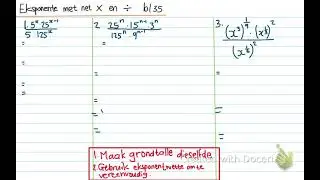 Eksponente met net × en ÷ b/35
1. 5ˣ·25ˣ⁻¹ / 5·125ˣ
2. 25ⁿ·15ⁿ⁺¹·3ⁿ / 125ⁿ·9ⁿ⁻¹
3. (x³)^(1/9)·(x^(1/3))² / (x^(1/9))²
=
=
=
=
=
=
=
1. Maak grondtalle dieselfde
2. Gebruik eksponentwette om te vereenvoudig.